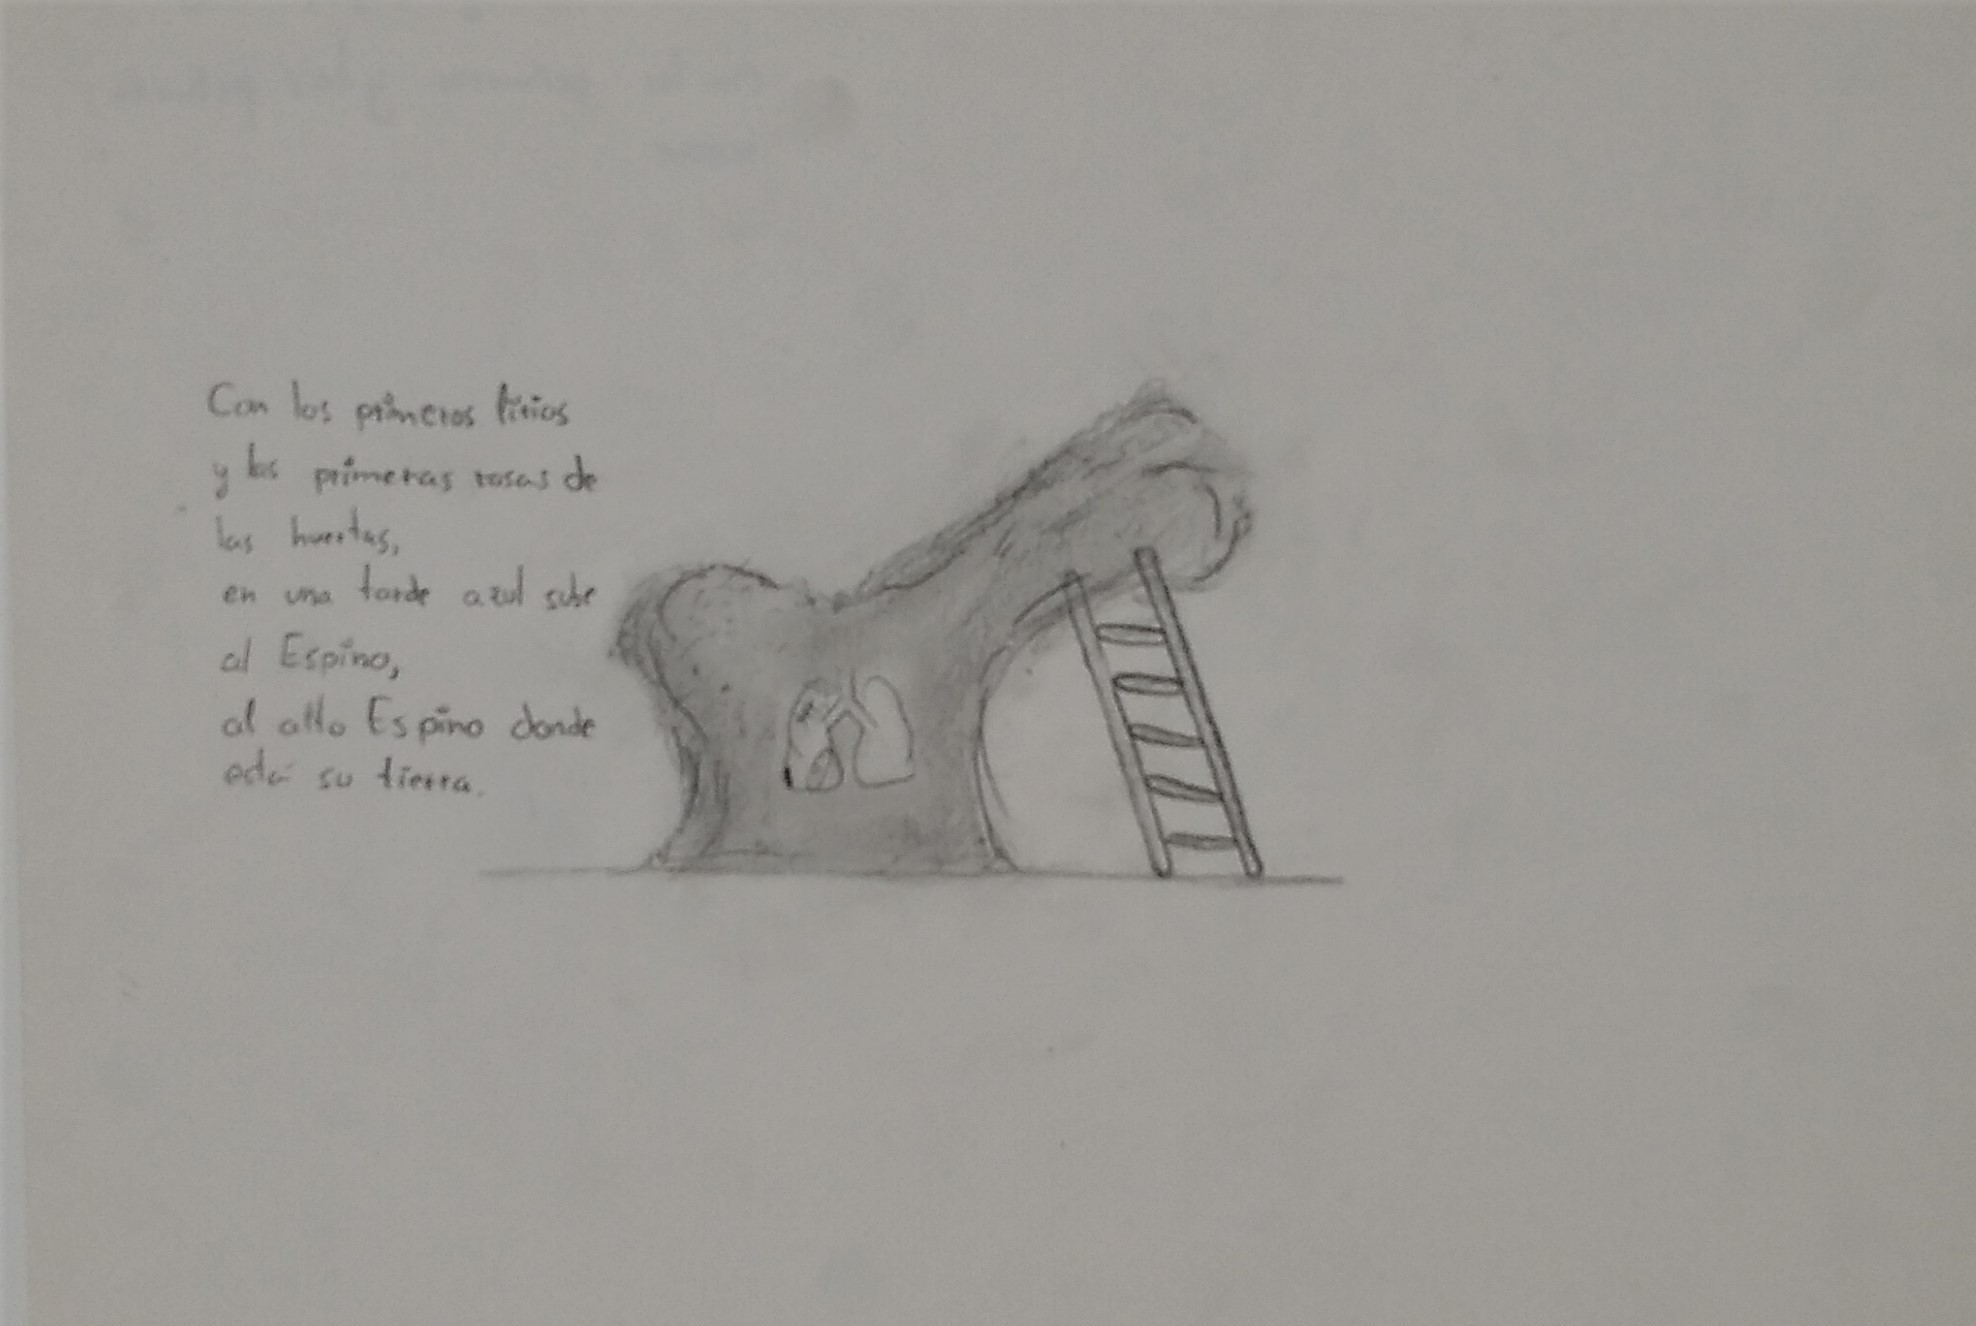 Con los primeros lirios
y las primeras rosas de
las huertas,
en una tarde azul sube
al Espino,
al alto Espino donde
está su tierra.